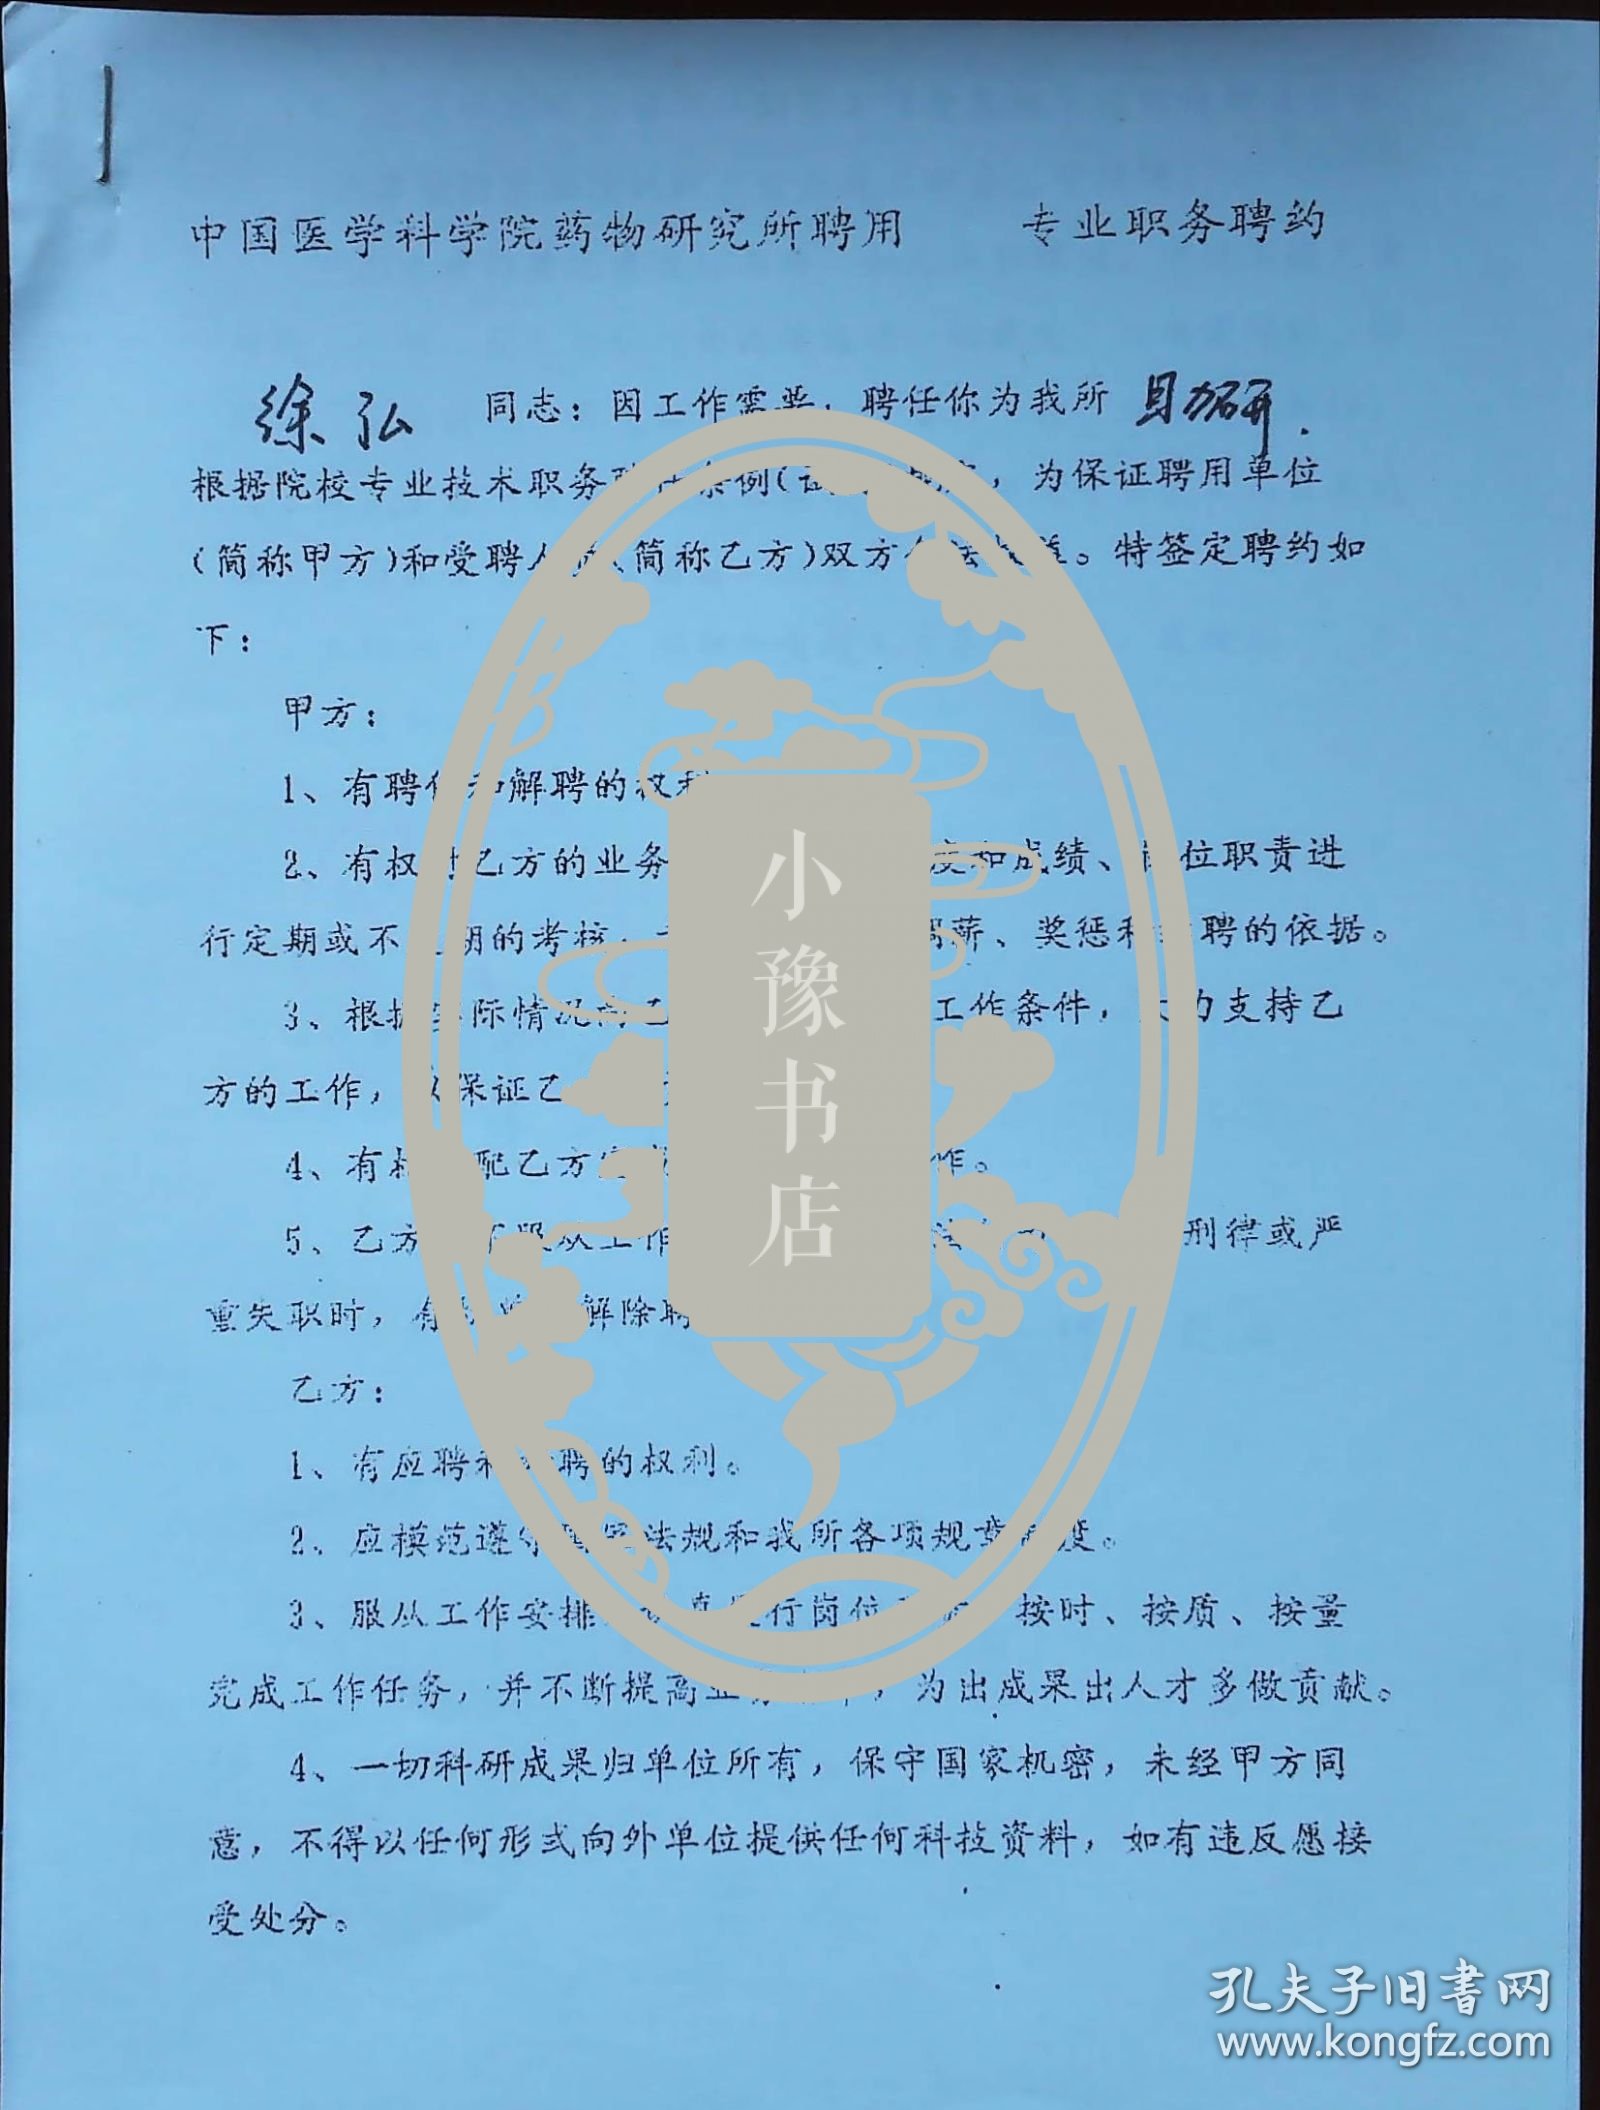 中国医学科学院药物研究所聘用 专业职务聘约
徐弘 同志：因工作需要，聘任你为我所 目加研.
根据院校专业技术职务 条例（ ，为保证聘用单位
（简称甲方）和受聘人 （简称乙方）双方 。特签定聘约如
下：
甲方：
1、有聘任和解聘的权利
2、有权对乙方的业务 度和成绩、岗位职责进
行定期或不定期的考核， 调薪、奖惩和 聘的依据。
3、根据实际情况向乙 工作条件，大力支持乙
方的工作，以保证乙
4、有权 配乙方 作。
5、乙方 不服从工作 刑律或严
重失职时，有 解除聘
乙方：
1、有应聘和 聘的权利。
2、应模范遵守国家法规和我所各项规章制度。
3、服从工作安排， 真履行岗位职责，按时、按质、按量
完成工作任务，并不断提高业务水平，为出成果出人才多做贡献。
4、一切科研成果归单位所有，保守国家机密，未经甲方同
意，不得以任何形式向外单位提供任何科技资料，如有违反愿接
受处分。
小豫书店
孔夫子旧书网
www.kongfz.com